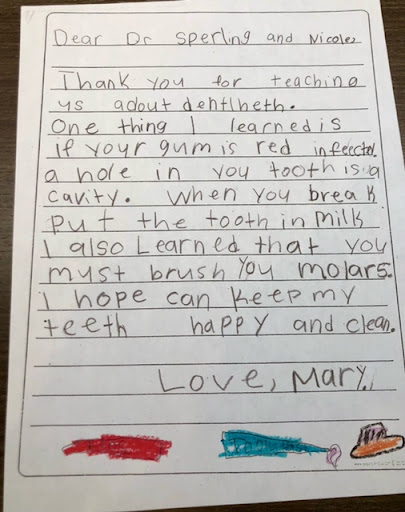 Dear Dr Sperling and Nicolez
Thank you for teaching
us adout dentlheth.
One thing I learned is
If your gum is red infeectd
a hole in you tooth is a
cavity. When you break
put the tooth in milk
I also Learned that you
must brush you molars.
i hope can keep my
teeth happy and clean.
Love, Mary.